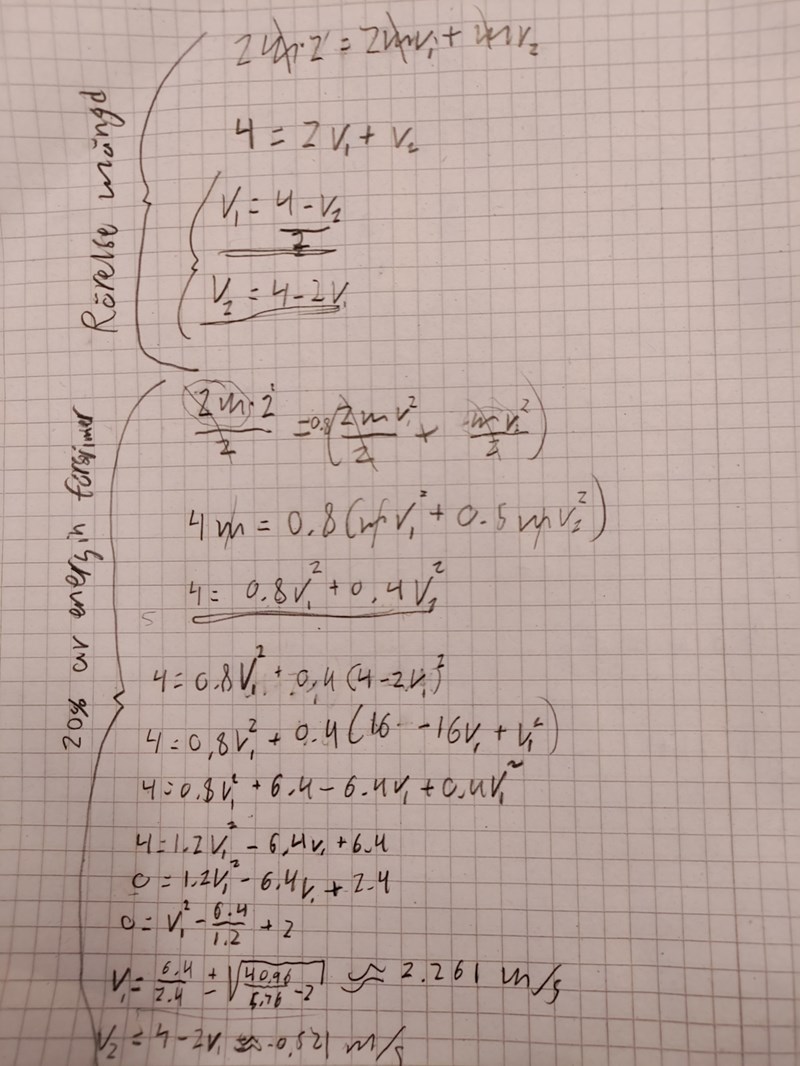 Rörelse mängd
2m·2 = 2mv₁ + mv₂
4 = 2v₁ + v₂
v₁ = (4 - v₂)/2
v₂ = 4 - 2v₁
20% av energin försvinner
(2m·2²)/2 = 0.8((2mv₁²)/2 + (mv₂²)/2)
4m = 0.8(mv₁² + 0.5mv₂²)
4 = 0.8v₁² + 0.4v₂²
4 = 0.8v₁² + 0,4(4-2v₁)²
4 = 0,8v₁² + 0.4(16 - 16v₁ + v₁²)
4 = 0.8v₁² + 6.4 - 6.4v₁ + 0.4v₁²
4 = 1.2v₁² - 6,4v₁ + 6.4
0 = 1.2v₁² - 6.4v₁ + 2.4
0 = v₁² - 6.4/1.2 + 2
v₁ = 6.4/2.4 ± √(40.96/5,76 - 2) ≈ 2.261 m/s
v₂ = 4 - 2v₁ ≈ -0,521 m/s